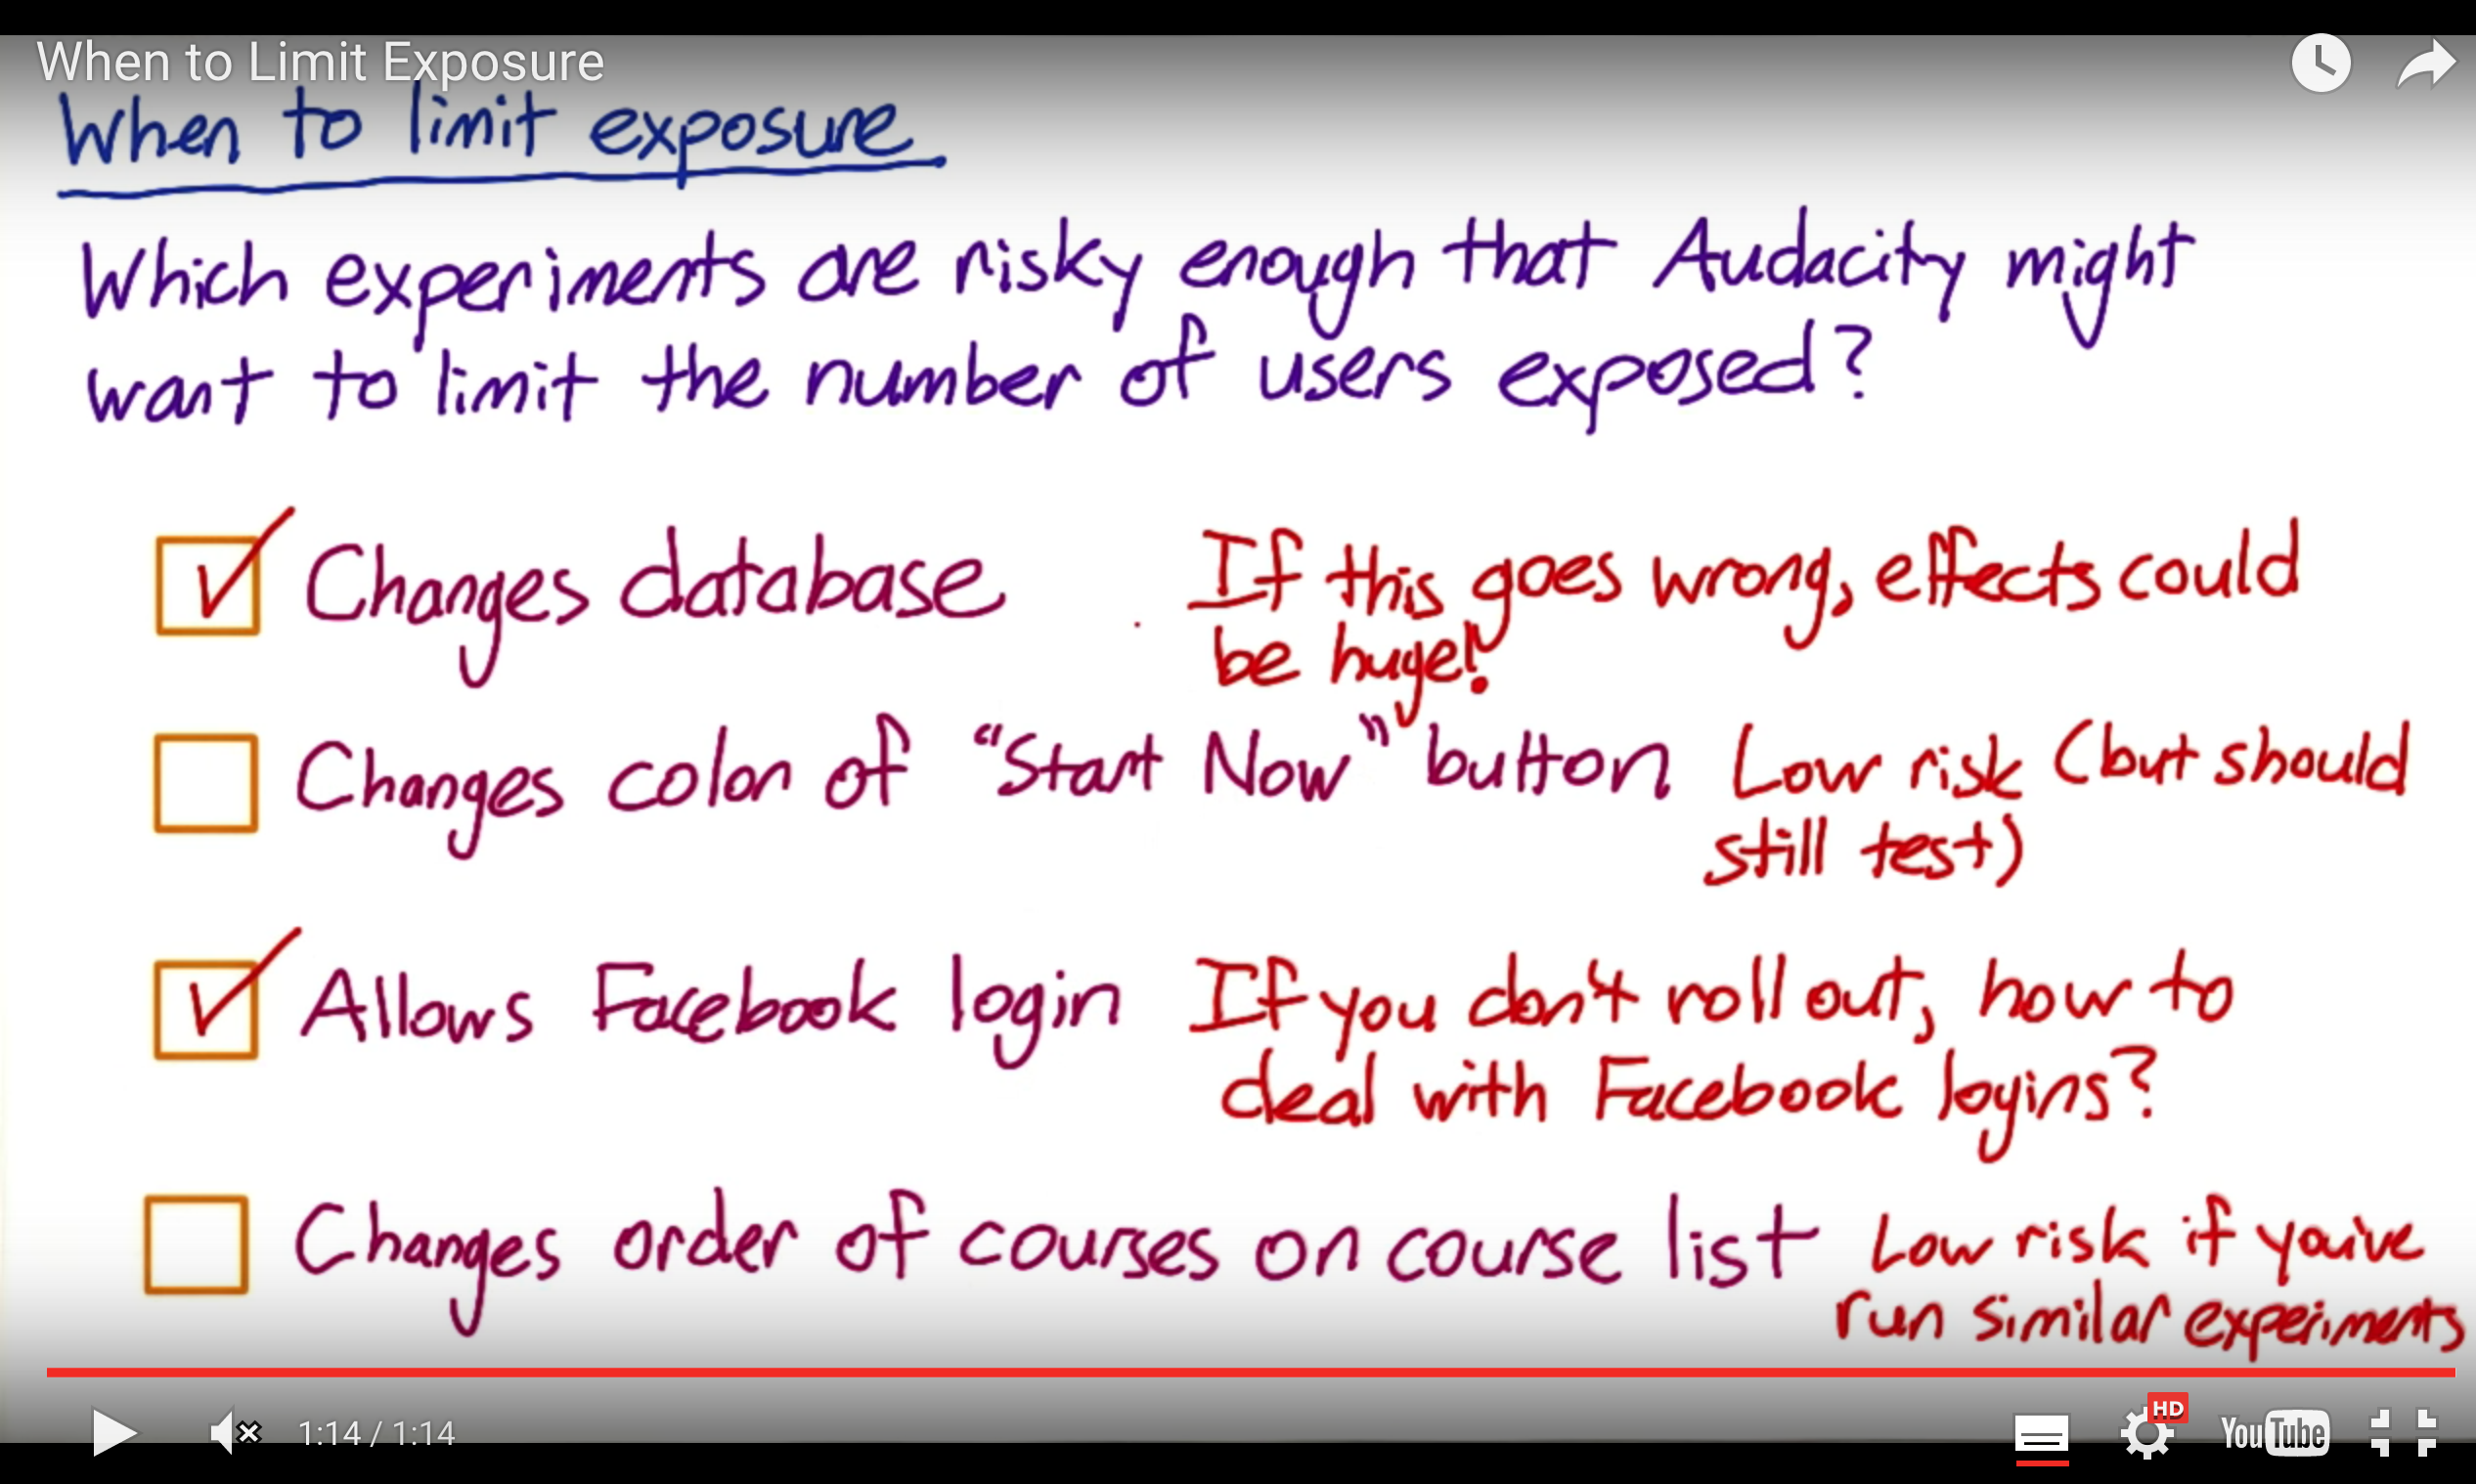 When to Limit Exposure
When to limit exposure
Which experiments are risky enough that Audacity might
want to limit the number of users exposed?
Changes database If this goes wrong, effects could
be huge!
Changes color of "Start Now" button Low risk (but should
still test)
Allows Facebook login If you don't roll out, how to
deal with Facebook logins?
Changes order of courses on course list Low risk if you've
run similar experiments
1:14 / 1:14
HD
YouTube